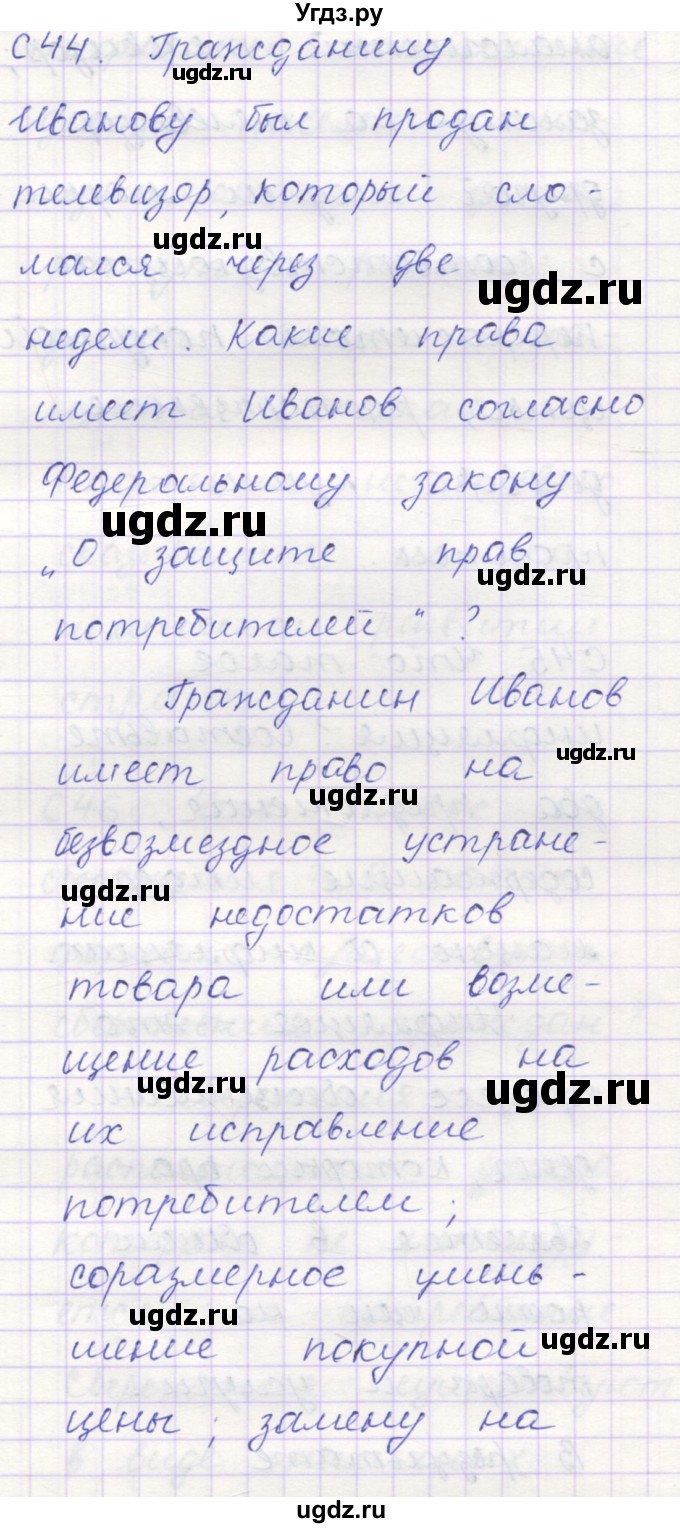 Угдз.ру
С44. Гражданину
ugdz.ru
Иванову был продан
телевизор, который сло-
ugdz.ru
мался через две
ugdz.ru
недели. Какие права
имеет Иванов согласно
Федеральному закону
ugdz.ru
„О защите прав
ugdz.ru
потребителей"?
Гражданин Иванов
ugdz.ru
имеет право на
ugdz.ru
безвозмездное устране-
ugdz.ru
ние недостатков
товара или возме-
щение расходов на
ugdz.ru
ugdz.ru
их исправление
потребителем;
соразмерное умень-
ugdz.ru
шение покупной
ugdz.ru
цены; замену на
ugdz.ru